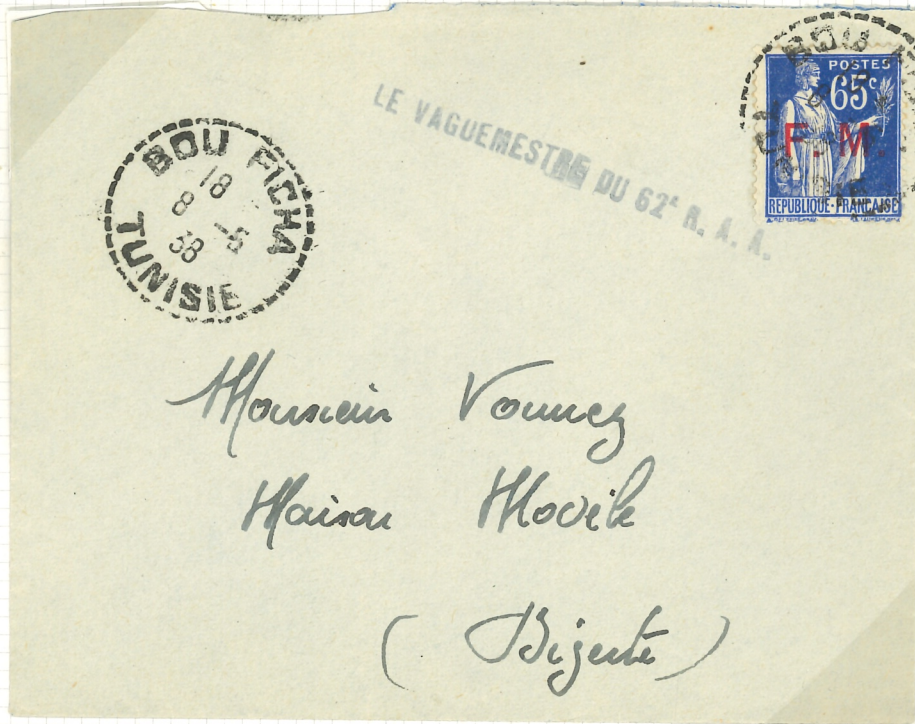 BOU FICHA
18
8 -6
38
TUNISIE
LE VAGUEMESTRE DU 62e R. A. A.
BOU
POSTES
65c
F. M.
REPUBLIQUE-FRANÇAISE
Monsieur
Maison
(Bizerte)